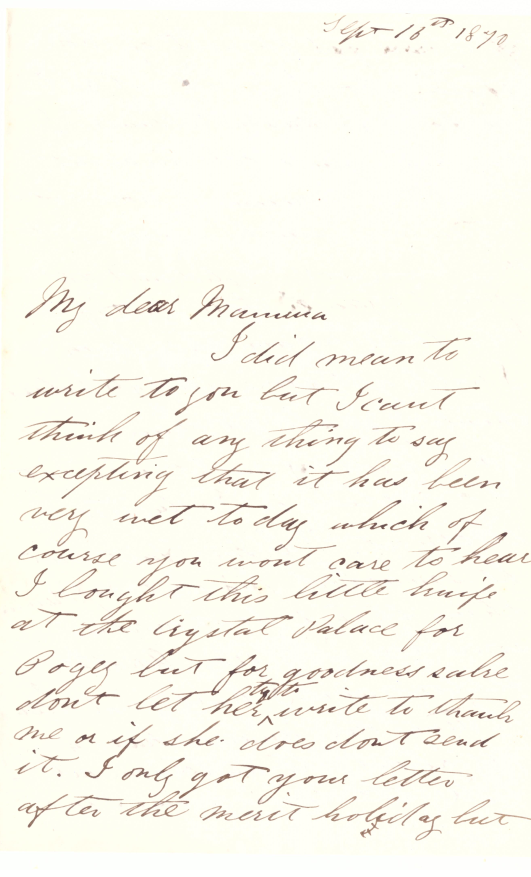 Sept 16th 1870
My dear Mamma
I did mean to
write to you but I cant
think of any thing to say
excepting that it has been
very wet today which of
course you wont care to hear
I bought this little knife
at the Crystal Palace for
Pogey but for goodness sake
dont let her ^try to write to thank
me or if she does dont send
it. I only got your letter
after the merit holiday but